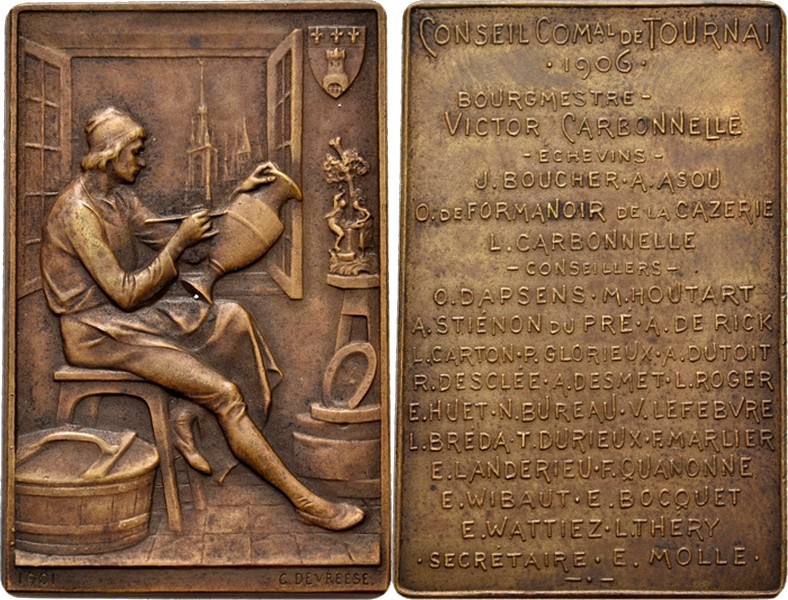 1901
G. DEVREESE.
CONSEIL COMAL DE TOURNAI
· 1906 ·
BOURGMESTRE -
VICTOR CARBONNELLE
- ECHEVINS -
J. BOUCHER · A. ASOU
O. DE FORMANOIR DE LA CAZERIE
L. CARBONNELLE
- CONSEILLERS -
O. DAPSENS · M. HOUTART
A. STIÉNON DU PRE · A. DE RICK
L. CARTON · P. GLORIEUX · A. DUTOIT
R. DESCLÉE · A. DESMET · L. ROGER
E. HUET · N. BUREAU · V. LEFEBVRE
L. BREDA · T. DURIEUX · F. MARLIER
E. LANDERIEU · F. QUANONNE
E. WIBAUT · E. BOCQUET
E. WATTIEZ · L. THERY
· SECRÉTAIRE · E. MOLLE ·